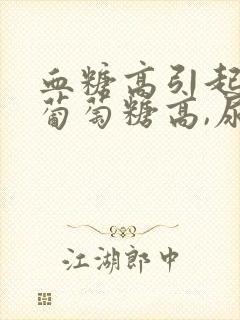 血糖高引起
葡萄糖高,尿
江湖郎中